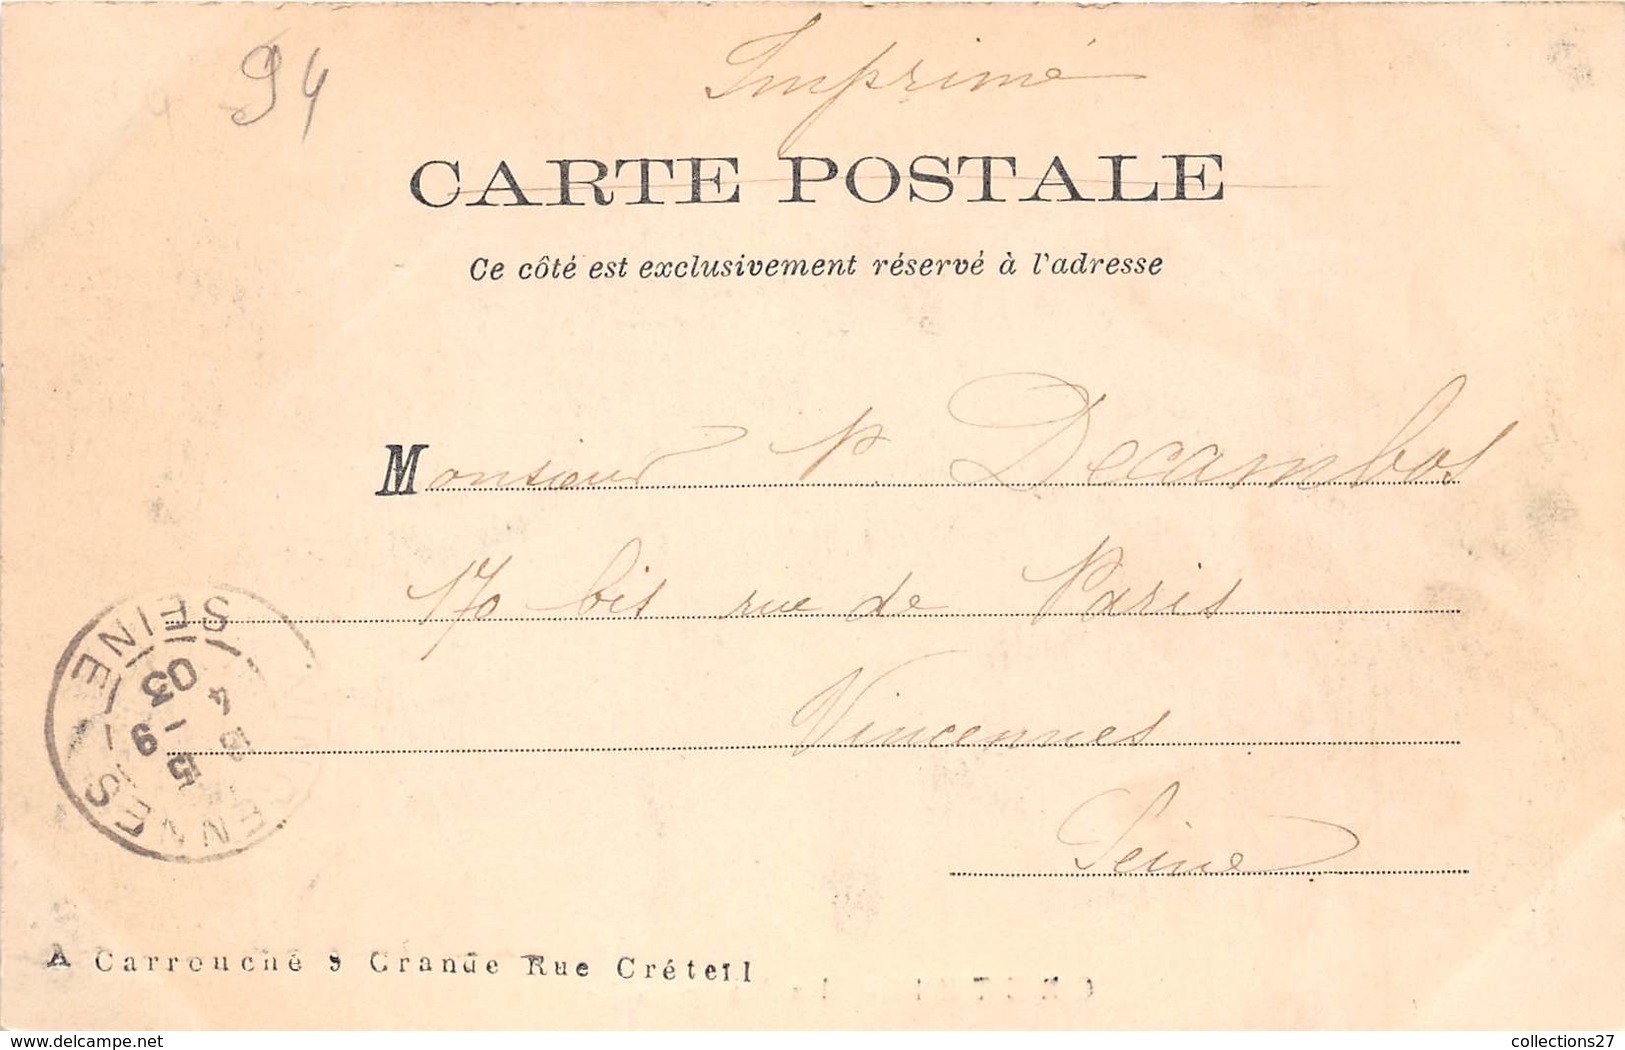 94
Imprimé
CARTE POSTALE
Ce côté est exclusivement réservé à l'adresse
Monsieur P. Decambos
170 bis rue de Paris
Vincennes
Seine
VINCENNES SEINE
5 - 9
03
A Carrouché 9 Grande Rue Créteil
www.delcampe.net
collections27